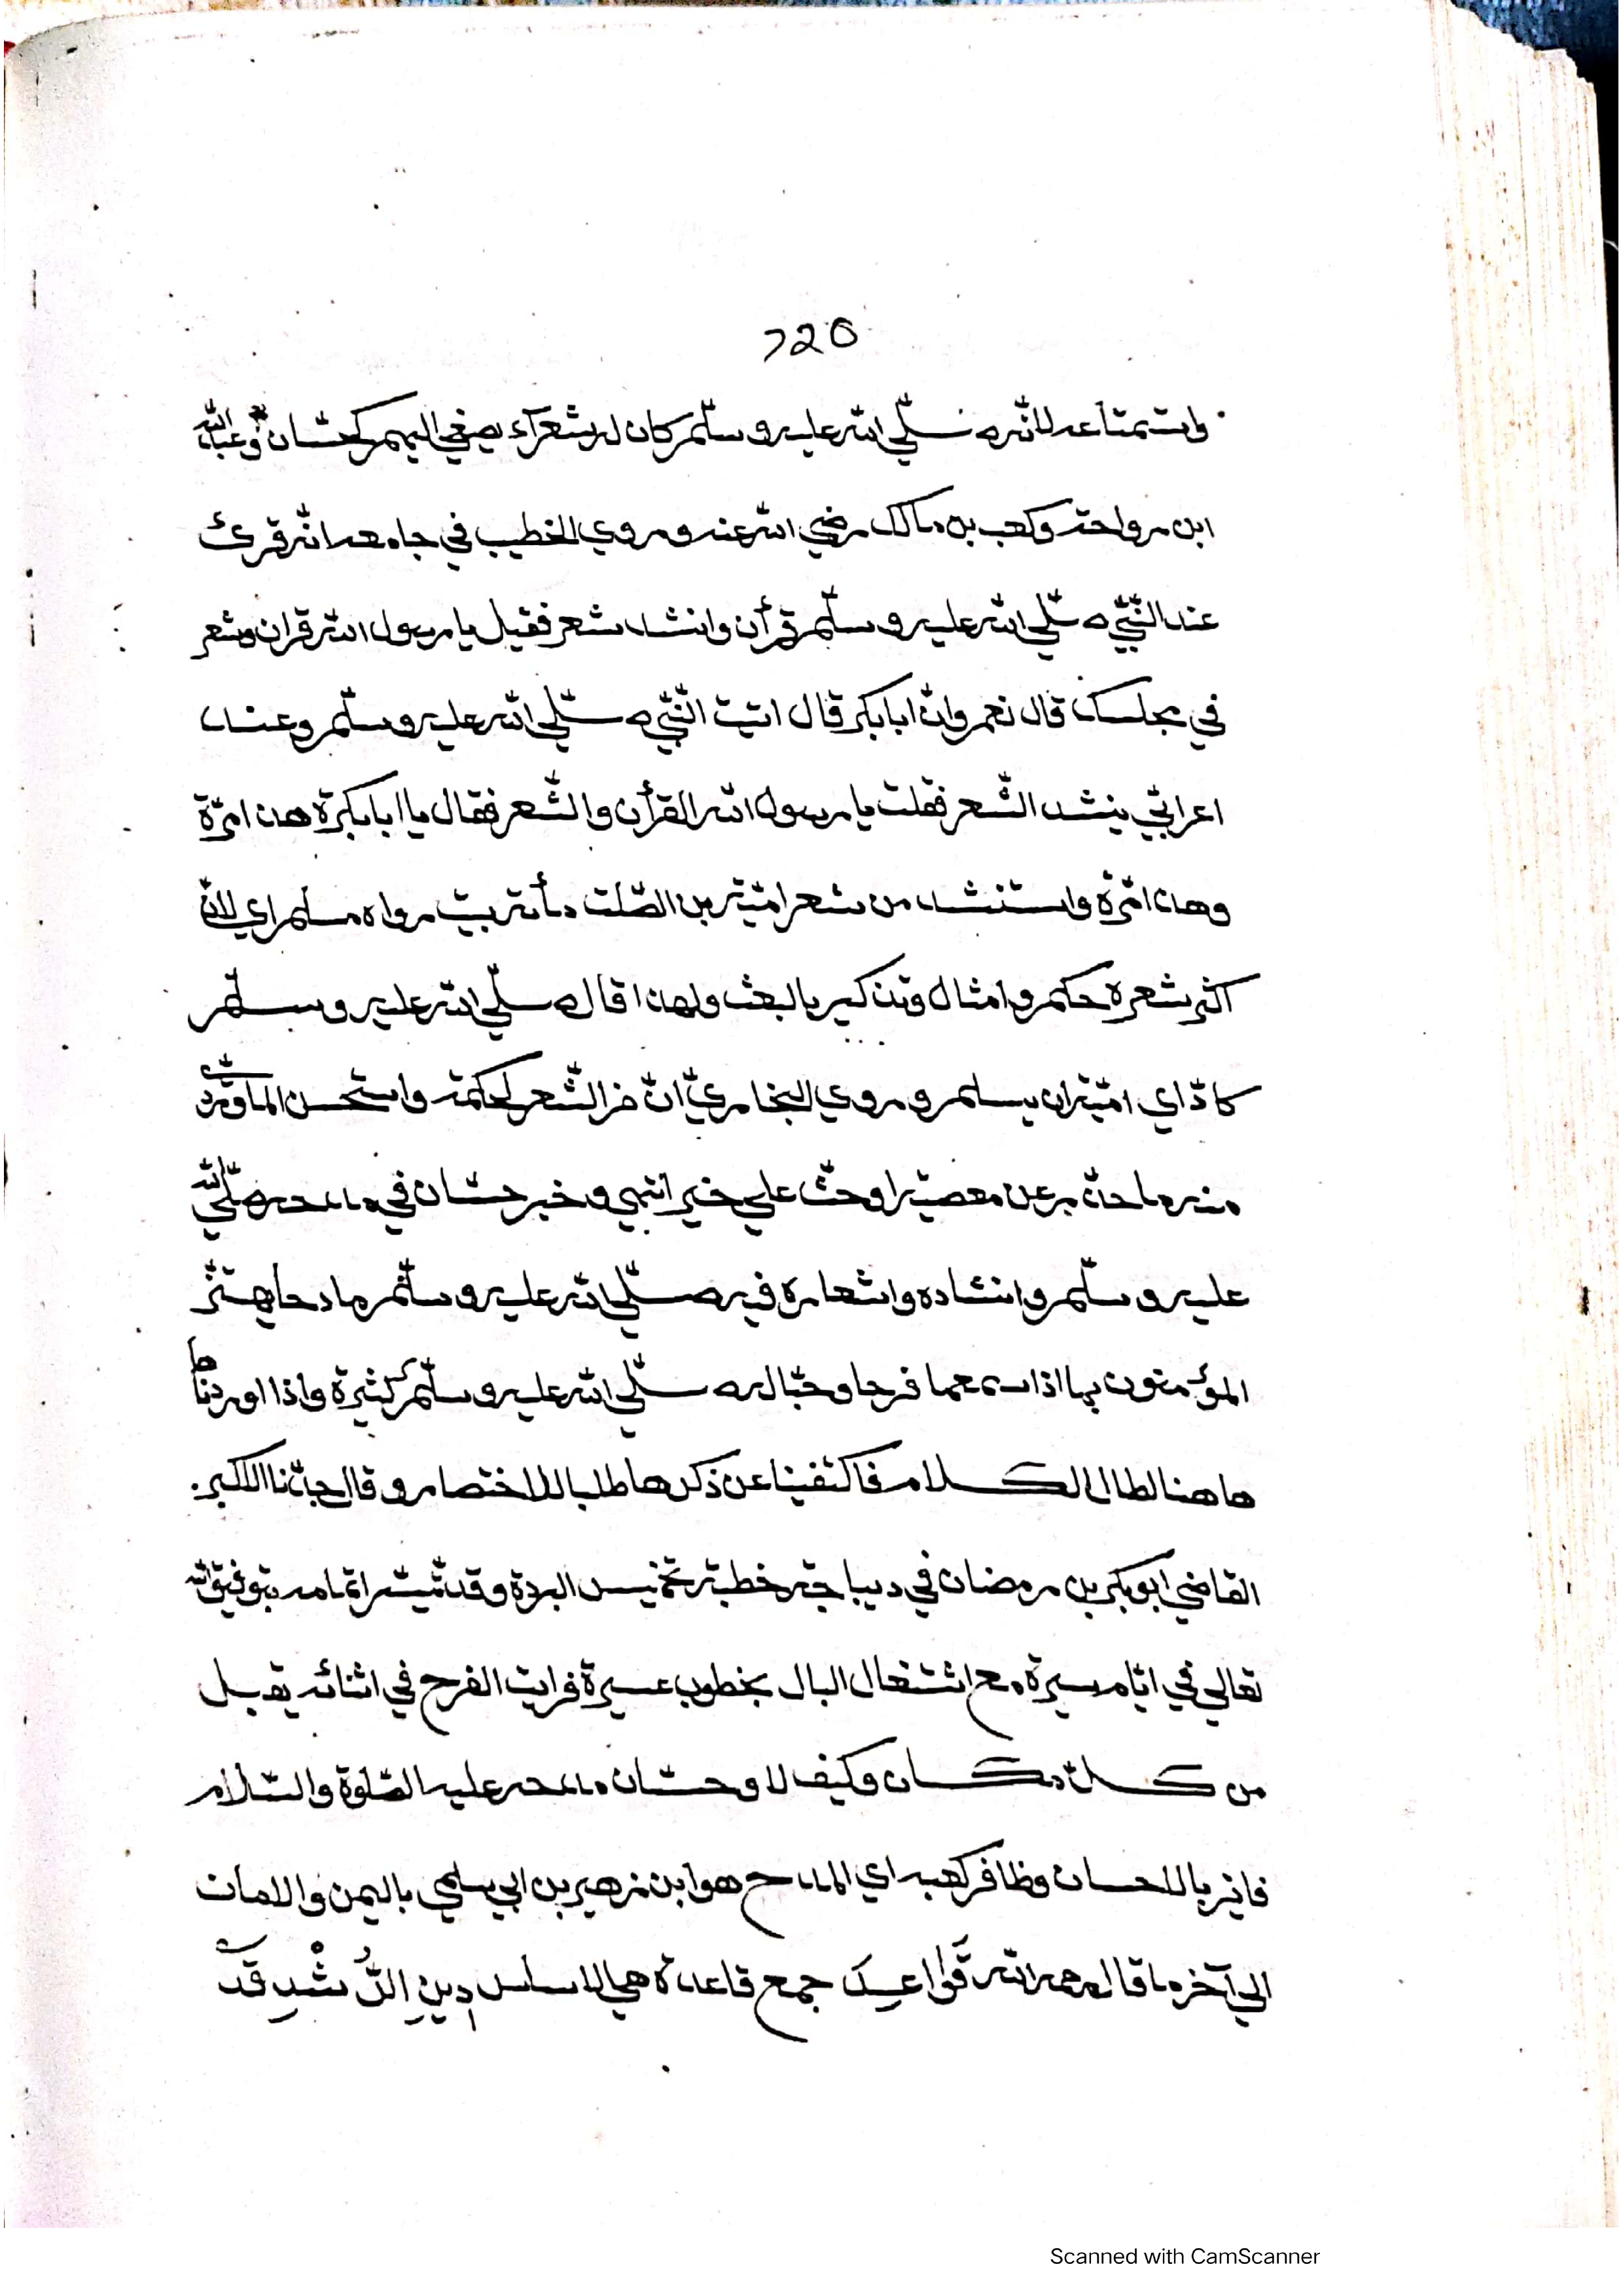 720
واستماعه لانه صلّي الله عليه وسلّم كان له شعرآء يصغي اليهم كحسّان وعبد الله
ابن رواحة وكعب بن مالك رضي الله عنه وروي الخطيب في جامعه انّه قرئ
عند النّبيّ صلّي الله عليه وسلّم قرأن وانشد شعر فقيل يا رسول الله قران وشعر
في مجلسك قال نعم وانّ ابا بكر قال اتيت النّبيّ صلّي الله عليه وسلّم وعنده
اعرابيّ ينشد الشّعر فقلت يا رسول الله القرأن والشّعر فقال يا ابا بكرة هذا مرّة
وهذا مرّة واستنشد من شعر اميّة بن الصّلت مأته بيت رواه مسلم اي لانّ
اكثر شعره حكم وامثال وتذكير بالبعث ولهذا قال صلّي الله عليه وسلّم
كادّ اي اميّة ان يسلم وروي البخاريّ انّ من الشّعر لحكمة واستحسن الماورديّ
منه ما حذّر عن معصية او حثّ علي خير انتهي وخبر حسّان في مدحه صلّي الله
عليه وسلّم وانشاده واشعاره فيه صلّي الله عليه وسلّم مادحا يهتزّ
المؤمنون بها اذا سمعها فرحا وحبّا له صلّي الله عليه وسلّم كثيرة واذا اوردناها
هاهنا لطال الكلام فاكتفينا عن ذكرها طلبا للاختصار وقال جدّنا الاكبر
القاضي ابو بكر بن رمضان في ديباجة خطبة تخميس البردة وقد تيسّر اتمامه بتوفيق الله
تعالي في ايّام يسيرة مع اشتغال البال بخطوب عسيرة فرايت الفرج في اثنائه يقبل
من كلّ مكان وكيف لا وحسّان مادحه عليه الصّلوة والسّلام
فائز بالاحسان وظافر كعبه اي المداح هو ابن زهير بن ابي سلمي باليمن والامان
الي آخره ما قال رحمه الله قَوَاعِدَ جمع قاعدة هي الاساس دِينِ الرُّشْدِ قَدْ
Scanned with CamScanner